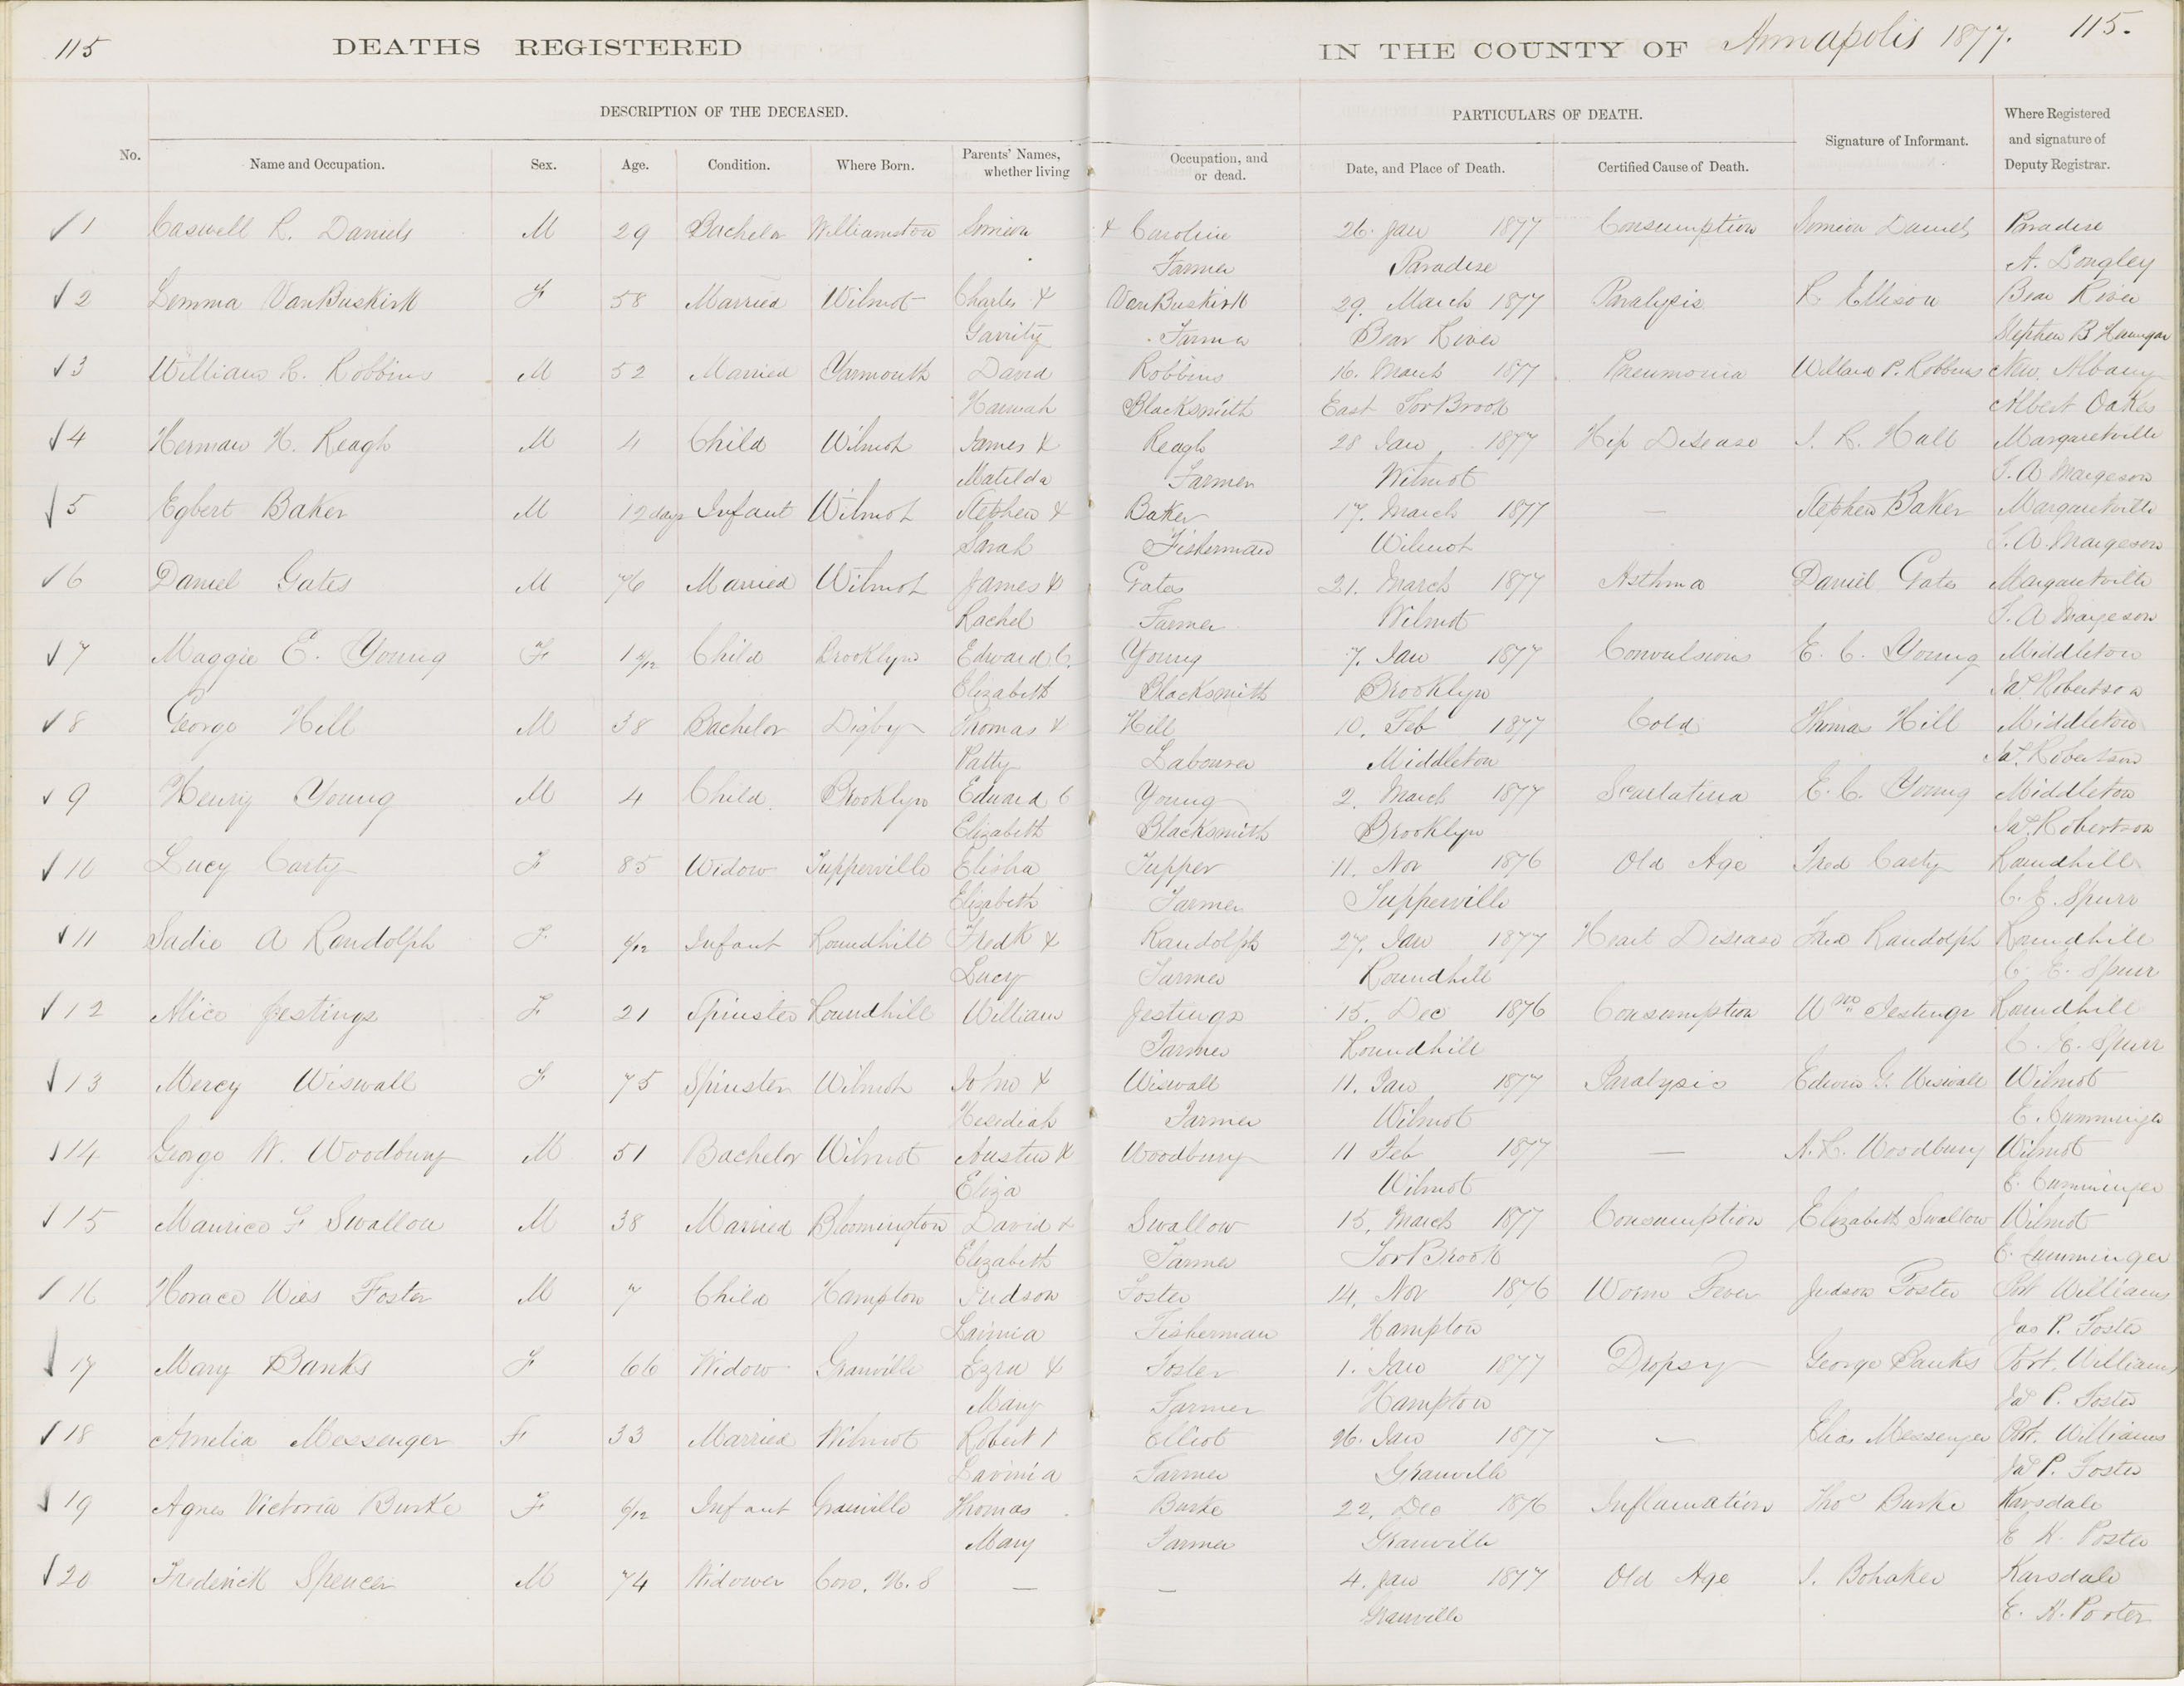 115 DEATHS REGISTERED IN THE COUNTY OF Annapolis 1877. 115.
DESCRIPTION OF THE DECEASED. PARTICULARS OF DEATH. Signature of Informant. Where Registered and signature of Deputy Registrar.
No. Name and Occupation. Sex. Age. Condition. Where Born. Parents' Names, whether living Occupation, and or dead. Date, and Place of Death. Certified Cause of Death.
1 Caswell R. Daniels M 29 Bachelor Williamston Simeon & Caroline 26. Jan 1877 Consumption Simeon Daniels Paradise
Farmer Paradise A. Longley
2 Lemma VanBuskirk F 58 Married Wilmot Charles & VanBuskirk 29. March 1877 Paralysis R Ellison Bear River
Garrity Farmer Bear River Stephen B
3 William H. Robbins M 52 Married Yarmouth David Robbins 16. March 1877 Pneumonia Willard P. Robbins New Albany
Hannah Blacksmith East TorBrook Albert Oakes
4 Herman H. Reagh M 4 Child Wilmot James & Reagh 28 Jan 1877 Hip Disease I. R. Hall Margaretville
Matilda Farmer Wilmot S. A Margeson
5 Egbert Baker M 12 days Infant Wilmot Stephen & Baker 17. March 1877 — Stephen Baker Margaretville
Sarah Fisherman Wilmot S. A. Margeson
6 Daniel Gates M 76 Married Wilmot James & Gates 21. March 1877 Asthma Daniel Gates Margaretville
Rachel Farmer Wilmot S. A Margeson
7 Maggie E. Young F Child Brooklyn Edward C. Young 7. Jan 1877 Convulsions E. C. Young Middleton
Elizabeth Blacksmith Brooklyn Jas Robertson
8 George Hill M 38 Bachelor Digby Thomas & Hill 10. Feb 1877 Cold Thomas Hill Middleton
Patty Labourer Middleton Jas. Robertson
9 Henry Young M 4 Child Brooklyn Edward C Young 2. March 1877 Scarlatina E. C. Young Middleton
Elizabeth Blacksmith Brooklyn Jas. Robertson
10 Lucy Carty F 85 Widow Tupperville Elisha Tupper 11. Nov 1876 Old Age Fred Carty Roundhill
Elizabeth Farmer Tupperville C. E. Spurr
11 Sadie A Randolph F Infant Roundhill Fredk & Randolph 27. Jan 1877 Heart Disease Fred Randolph Roundhill
Lucy Farmer Roundhill C. E. Spurr
12 Alice Jestings F 21 Spinster Roundhill William Jestings 15. Dec 1876 Consumption Wm Jestings Roundhill
Farmer Roundhill C. E. Spurr
13 Mercy Wiswall F 75 Spinster Wilmot John & Wiswall 11. Jan 1877 Paralysis Edwin G. Wiswall Wilmot
Hesediah Farmer Wilmot E. Cumminger
14 George W. Woodbury M 51 Bachelor Wilmot Austin & Woodbury 11 Feb 1877 — A. R. Woodbury Wilmot
Eliza Wilmot E. Cumminger
15 Maurice F Swallow M 38 Married Bloomington David & Swallow 15. March 1877 Consumption Elizabeth Swallow Wilmot
Elizabeth Farmer TorBrook E. Cumminger
16 Horace Wies Foster M 7 Child Hampton Judson Foster 14. Nov 1876 Worm Fever Judson Foster Port Williams
Lavinia Fisherman Hampton Jas P. Foster
17 Mary Banks F 66 Widow Granville Ezra & Foster 1. Jan 1877 Dropsy George Banks Port. Williams
Mary Farmer Hampton Jas P. Foster
18 Amelia Messenger F 33 Married Wilmot Robert & Elliot 26. Jan 1877 — Elias Messenger Port. Williams
Lavinia Farmer Granville Jas P. Foster
19 Agnes Victoria Burke F 6/12 Infant Granville Thomas Burke 22. Dec 1876 Inflamation Thos Burke Karsdale
Mary Farmer Granville E K. Porter
20 Frederick Spencer M 74 Widower Corn. N. S — — 4. Jan 1877 Old Age I. Bohaker Karsdale
Granville E. K. Porter